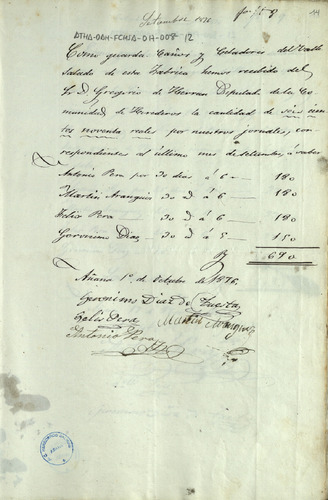 Setiembre 1876
14
ATHA-DAH-FCHSA-DH-008-12
Como guarda Caños y Celadores del Valle
Salado de esta Fabrica hemos recibido del
Sr. D. Gregorio de Herran Diputado de la Co-
munidad de Herederos la cantidad de seis cien-
tos noventa reales por nuestros jornales, cor-
respondientes al último mes de setiembre, á saber
Antonio Pera por 30 dias á 6 — 180
Martin Aranguiz — 30 D á 6 — 180
Felix Pera — 30 D á 6 — 180
Geronimo Diaz — 30 D á 5 — 150
690
Añana 1º de Octubre de 1876.
Geronimo Diaz de Tuesta
Felix Pera
Martin Aranguiz
Antonio Pera